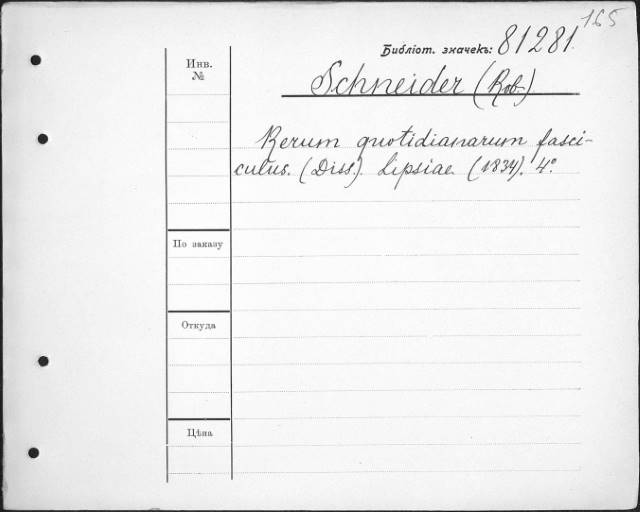 165
Библіот. значекъ: 81281.
Инв.
№
Schneider (Rob.)
Rerum quotidianarum fasci-
culus. (Diss.). Lipsiae (1834). 4°.
По заказу
Откуда
Цѣна